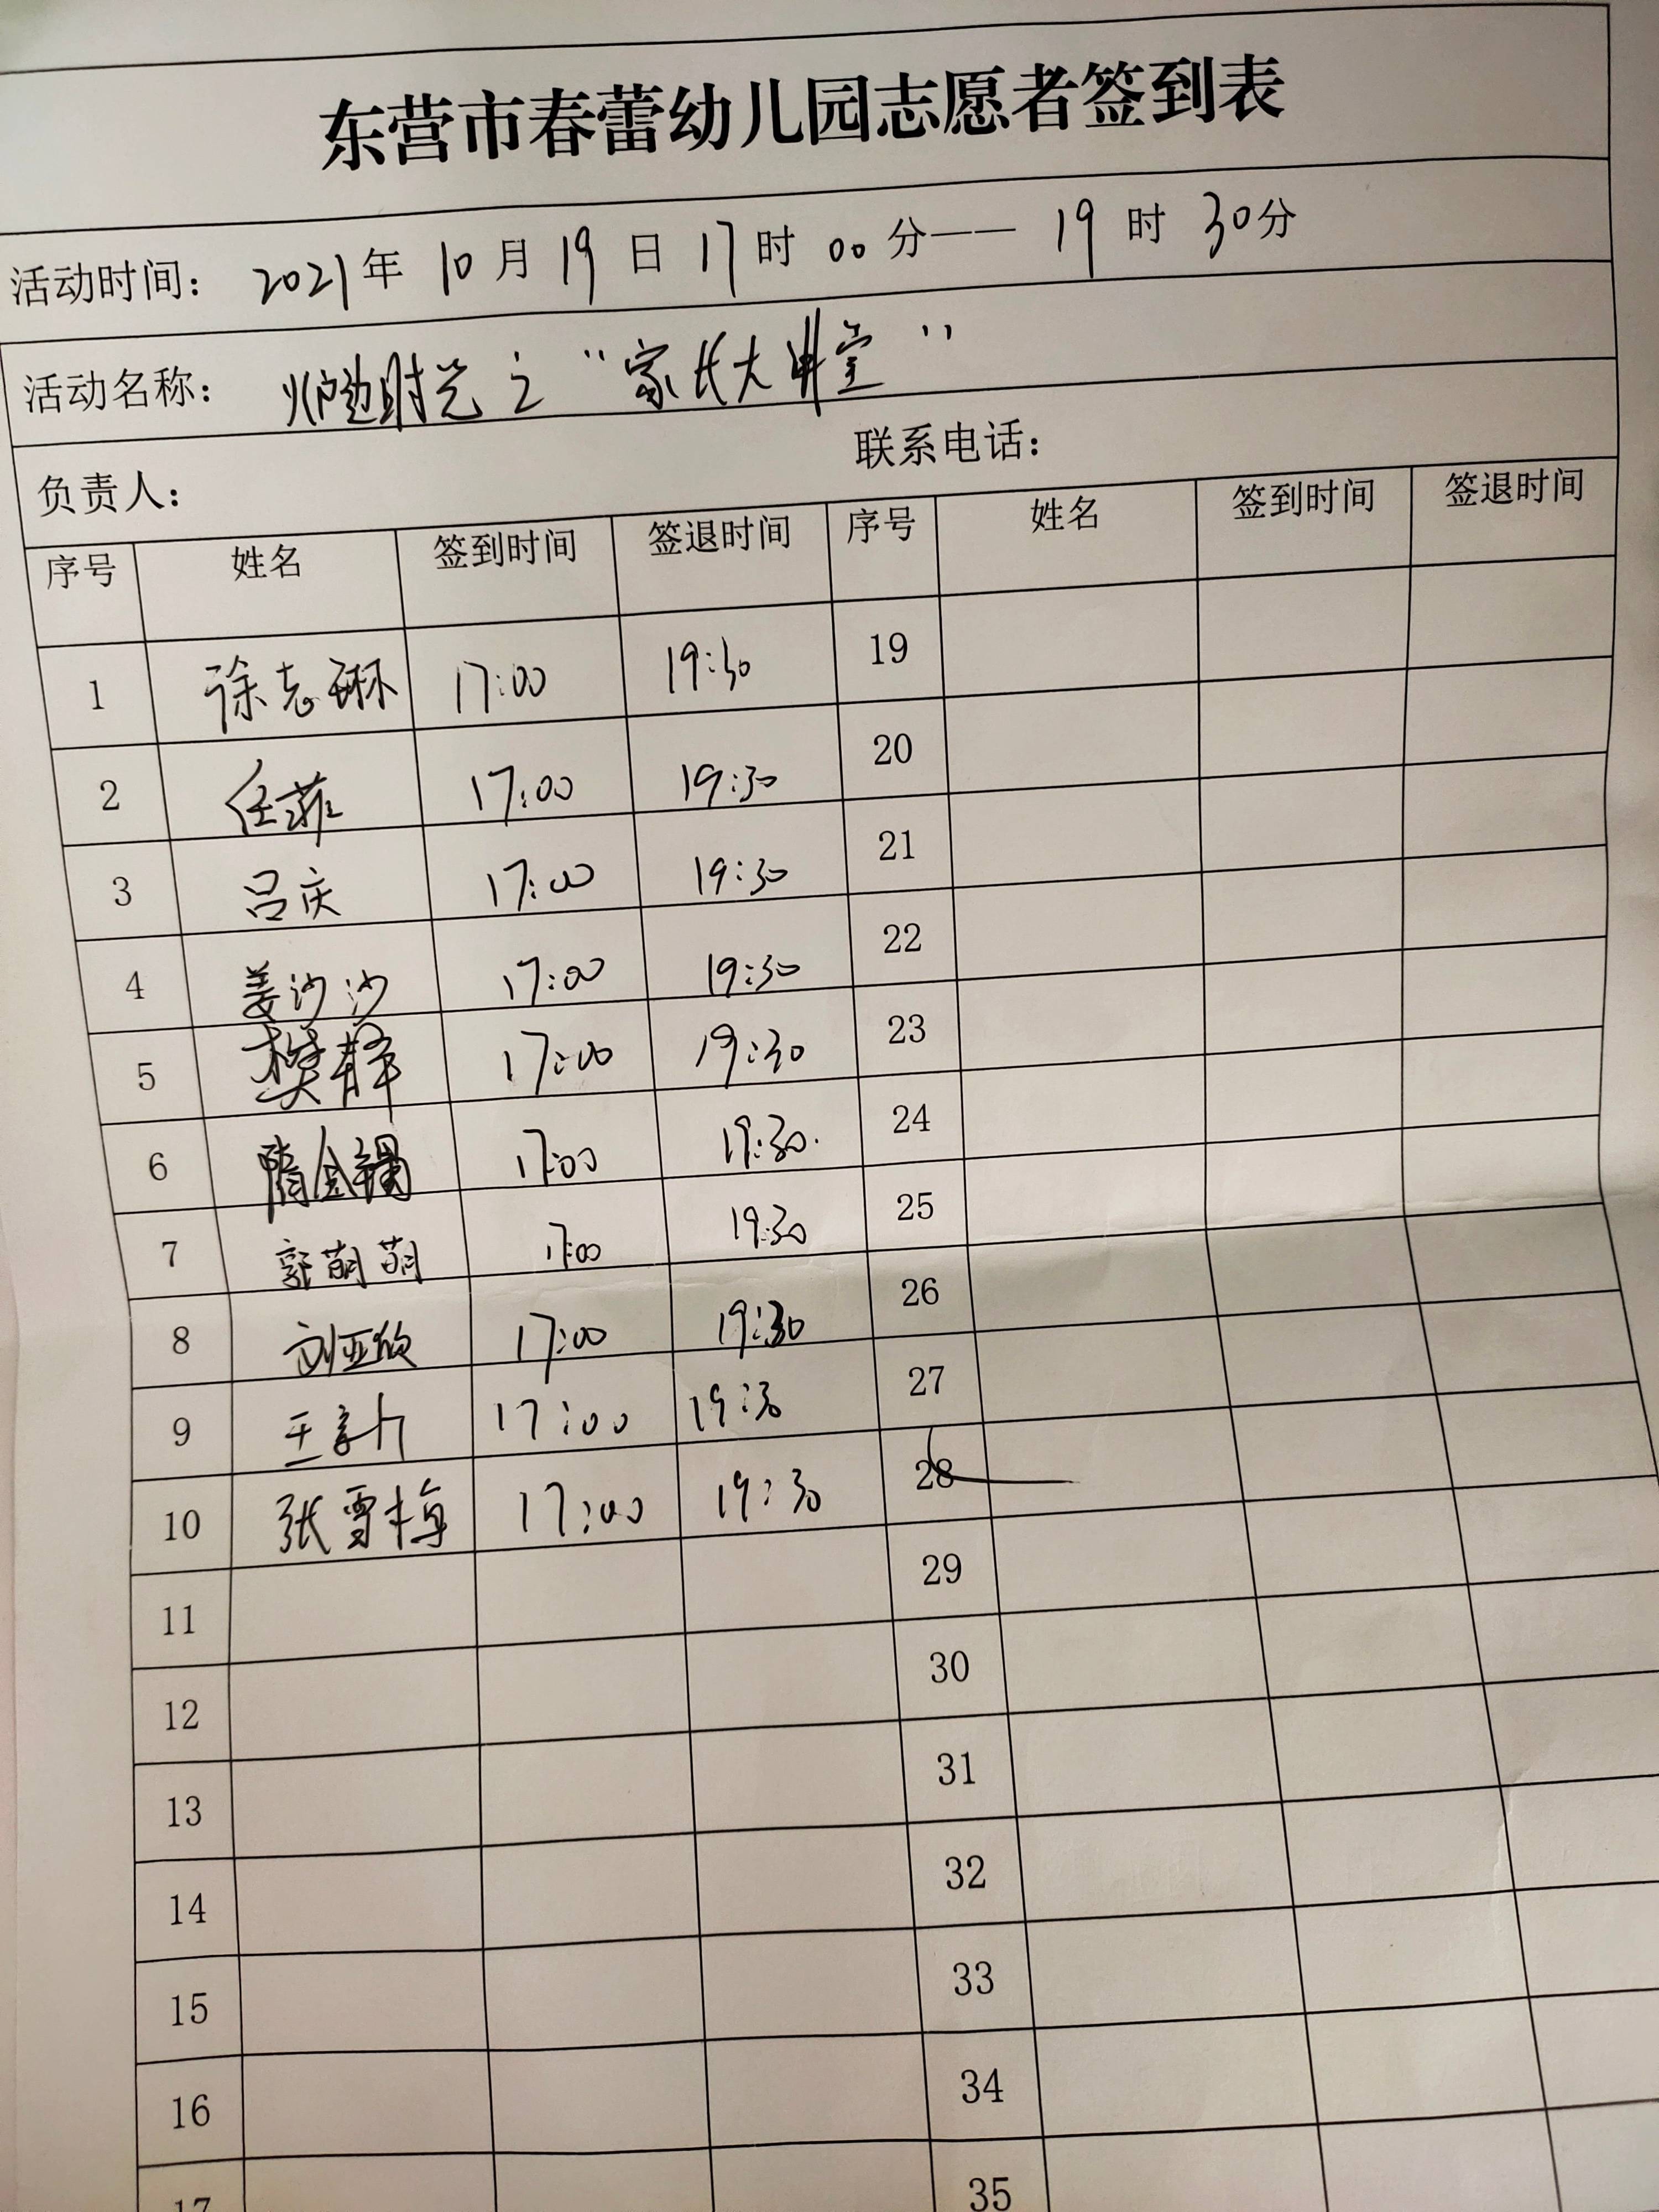 东营市春蕾幼儿园志愿者签到表
活动时间： 2021年 10月 19日 17时 00分—— 19时 30分
活动名称： 炉边时光之“家长大讲堂”
负责人： 联系电话：
序号 姓名 签到时间 签退时间 序号 姓名 签到时间 签退时间
1 徐志琳 17:00 19:30 19
2 任菲 17:00 19:30 20
3 吕庆 17:00 19:30 21
4 姜沙沙 17:00 19:30 22
5 樊静 17:00 19:30 23
6 隋金 17:00 19:30. 24
7 郭萌萌 17:00 19:30 25
8 刘亚欣 17:00 19:30 26
9 王 17:00 19:30 27
10 张雪梅 17:00 19:30 28
11 29
12 30
13 31
14 32
15 33
16 34
17 35